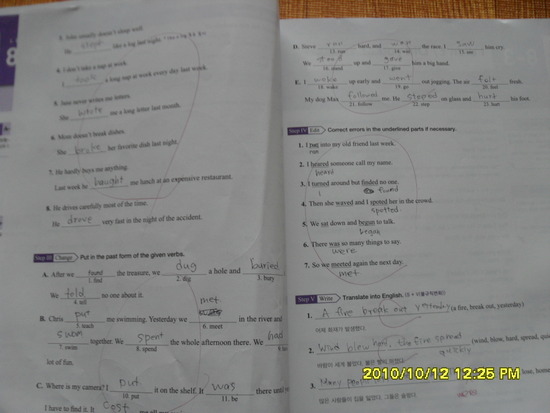 8
3. John usually doesn't sleep well.
He slept like a log last night.
4. I don't take a nap at work.
I took a long nap at work every day last week.
5. Jane never writes me letters.
She wrote me a long letter last month.
6. Mom doesn't break dishes.
She broke her favorite dish last night.
7. He hardly buys me anything.
Last week he bought me lunch at an expensive restaurant.
8. He drives carefully most of the time.
He drove very fast in the night of the accident.
Step III Change Put in the past form of the given verbs.
A. After we found the treasure, we dug a hole and buried
1. find 2. dig 3. bury
We told no one about it.
4. tell
B. Chris me swimming. Yesterday we met in the river and
5. teach 6. meet
swam together. We spent the whole afternoon there. We had
7. swim 8. spend
lot of fun.
C. Where is my camera? I put it on the shelf. It was there until
10. put 11. be
I have to find it. It cost
D. Steve ran hard, and won the race. I saw him cry.
13. run 14. win
We stood up and gave him a big hand.
16. stand 17. give
E. I woke up early and went out jogging. The air felt fresh.
18. wake 19. go 20. feel
My dog Max followed me. He stepped on glass and hurt his foot.
21. follow 22. step 23. hurt
Step IV Edit Correct errors in the underlined parts if necessary.
1. I ran into my old friend last week.
ran
2. I heared someone call my name.
heard
3. I turned around but finded no one.
found
4. Then she waved and I spoted her in the crowd.
spotted
5. We sat down and begun to talk.
began
6. There was so many things to say.
were
7. So we meeted again the next day.
met
Step V Write Translate into English.
1. A fire break out yesterday (a fire, break out, yesterday)
어제 화재가 발생했다.
2. Wind blew hard, the fire spread (wind, blow, hard, spread,
quickly
3. Many people
2010/10/12 12:25 PM